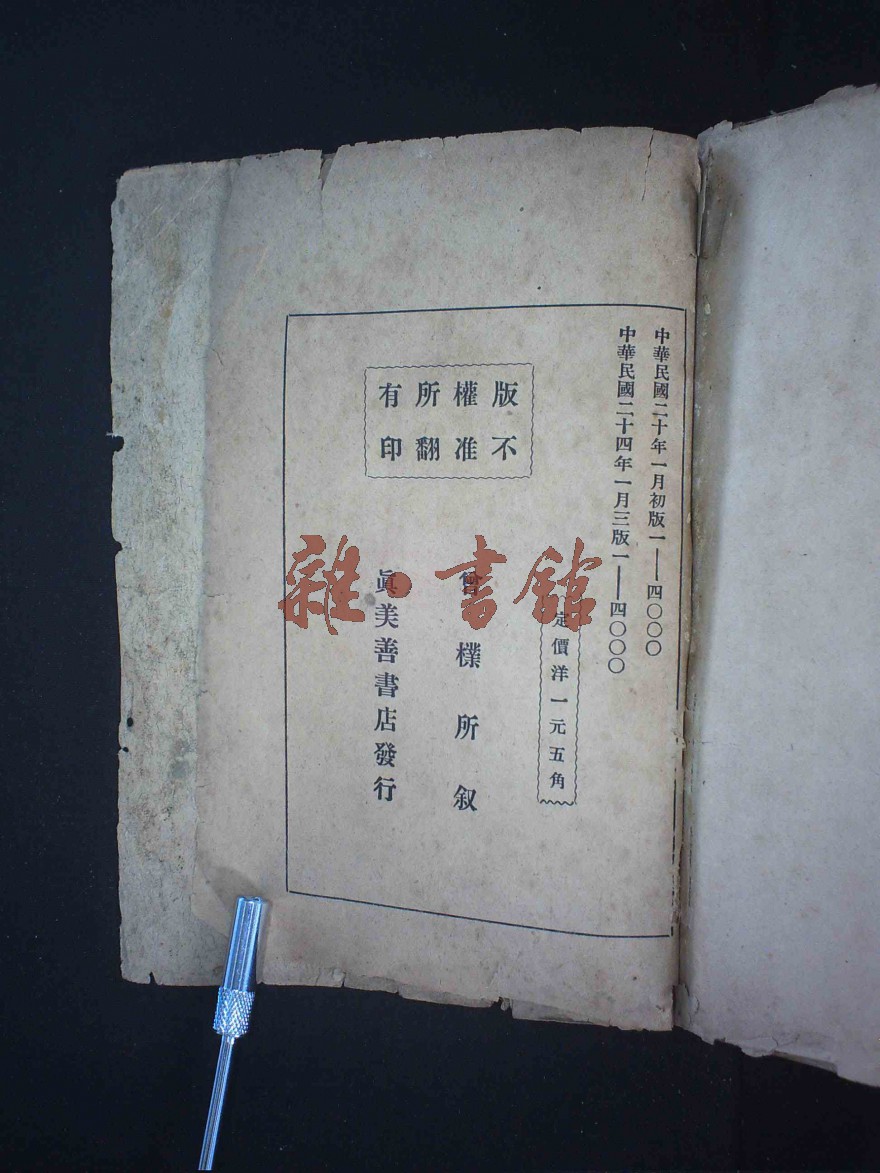 中華民國二十年一月初版一——四〇〇〇
中華民國二十四年一月三版一——四〇〇〇
定價洋一元五角
版權所有
不准翻印
曾樸所叙
眞美善書店發行
雜·書館